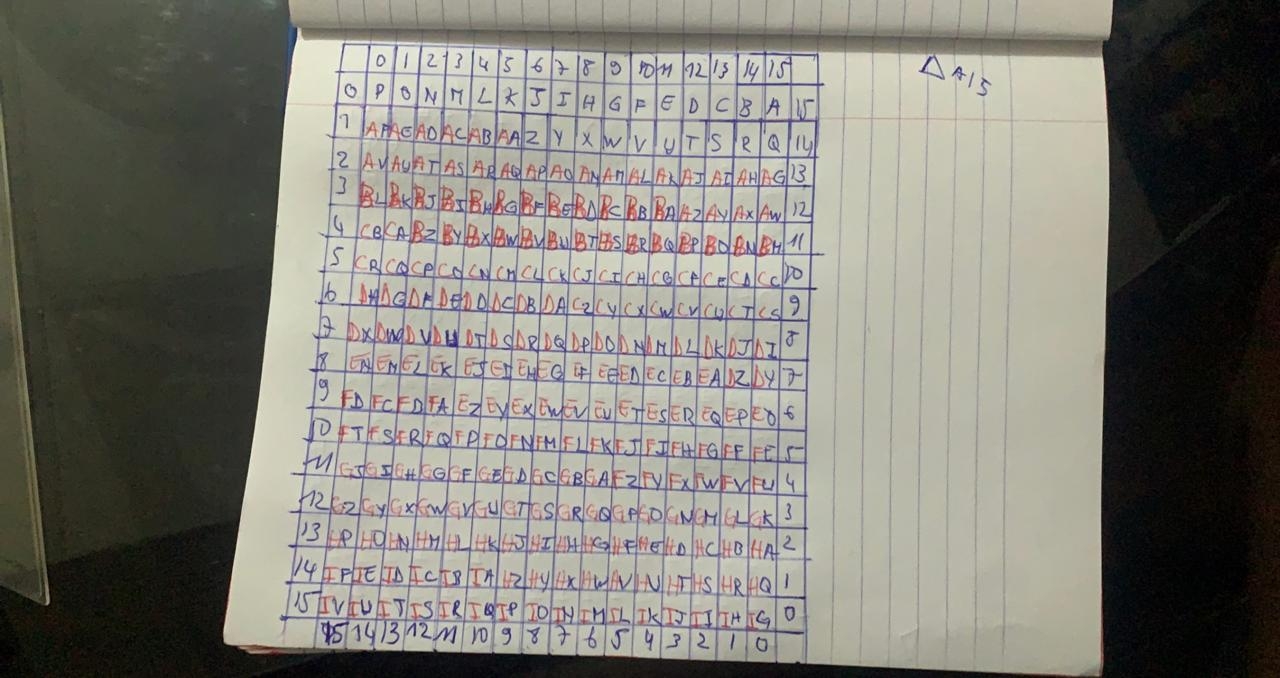 0 1 2 3 4 5 6 7 8 9 10 11 12 13 14 15
0 P O N M L K J I H G F E D C B A 15
1 AF AE AD AC AB AA Z Y X W V U T S R Q 14
2 AV AU AT AS AR AQ AP AO AN AM AL AK AJ AI AH AG 13
3 BL BK BJ BI BH BG BF BE BD BC BB BA AZ AY AX AW 12
4 CB CA BZ BY BX BW BV BU BT BS BR BQ BP BO BN BM 11
5 CR CQ CP CO CN CM CL CK CJ CI CH CG CF CE CD CC 10
6 DH DG DF DE DD DC DB DA CZ CY CX CW CV CU CT CS 9
7 DX DW DV DU DT DS DR DQ DP DO DN DM DL DK DJ DI 8
8 EN EM EL EK EJ EI EH EG EF EE ED EC EB EA DZ DY 7
9 FD FC FB FA EZ EY EX EW EV EU ET ES ER EQ EP EO 6
10 FT FS FR FQ FP FO FN FM FL FK FJ FI FH FG FF FE 5
11 GJ GI GH GG GF GE GD GC GB GA FZ FY FX FW FV FU 4
12 GZ GY GX GW GV GU GT GS GR GQ GP GO GN GM GL GK 3
13 HP HO HN HM HL HK HJ HI HH HG HF HE HD HC HB HA 2
14 IF IE ID IC IB IA HZ HY HX HW HV HU HT HS HR HQ 1
15 IV IU IT IS IR IQ IP IO IN IM IL IK IJ II IH IG 0
15 14 13 12 11 10 9 8 7 6 5 4 3 2 1 0
Δ A15